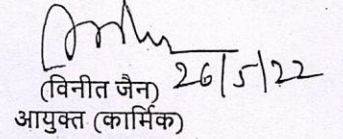 (विनीत जैन) 26/5/22
आयुक्त (कार्मिक)